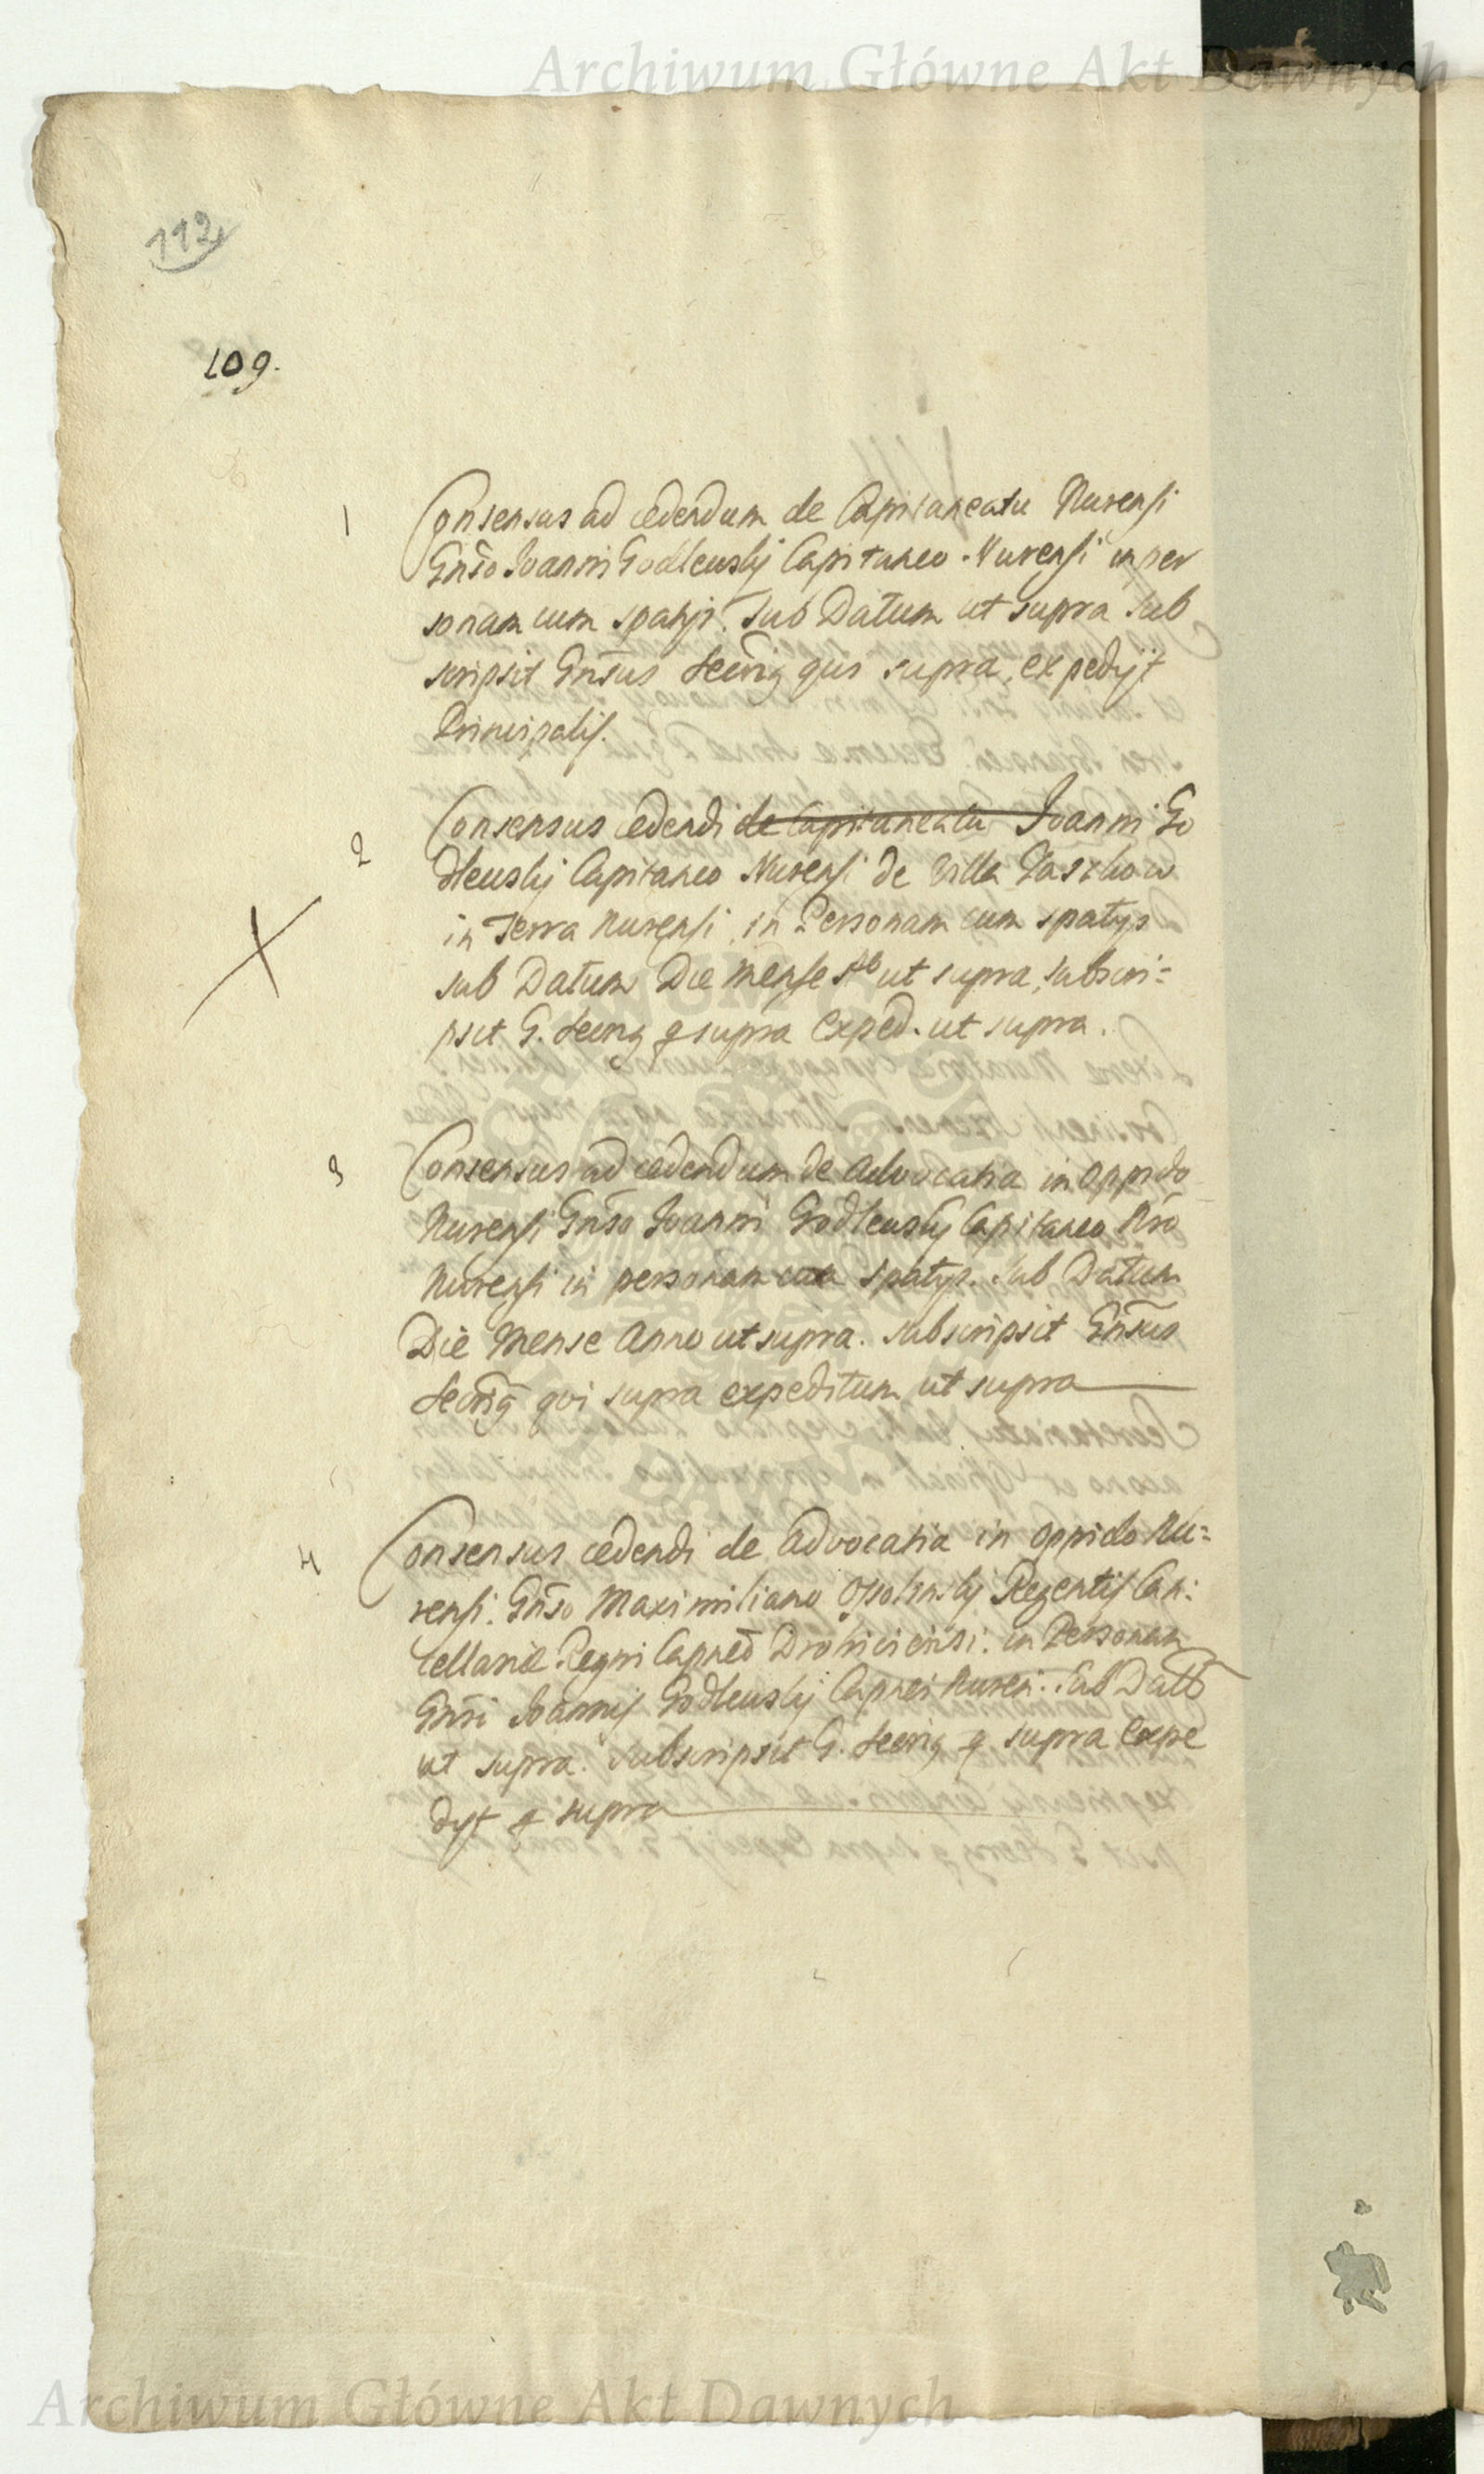 Archiwum Główne Akt Dawnych
112
109.
1 Consensus ad cedendum de Capitaneatu Nurensi
Gnso Joanni Godleuskj Capitaneo Nurensi in per
sonam cum spatijs. Sub Datum ut supra sub
scripsit Gnsus Secrig qus supra, expedijt
Principalis.
2 Consensus cedendi de Capitaneatu Joanni Go
dleuskj Capitaneo Nurensi de Villa
in Terra Nurensi, in Personam cum spatys
sub Datum Die mense ut supra, subscri=
psit G. Secrig q supra Exped. ut supra.
3 Consensus ad cedendum de Advocatia in oppido
Nurensi Gnso Joanni Godleuskj Capitaneo Nro
Nurensi in personam cum spatys. Sub Datum
Die Mense Anno ut supra. Subscripsit Gnsus
Secrig qui supra expeditum ut supra
4 Consensus cedendi de Advocatia in oppido Nu=
rensi. Gnso Maximiliano Ossolinskj Regentis Can:
cellariæ Regni Capneo in Personam
Gnsi Joannis Godleuskj Capnei Nuren: Sub Datt
ut supra. Subscripsit G. Secrig q supra Expe
dyt q supra
Archiwum Główne Akt Dawnych